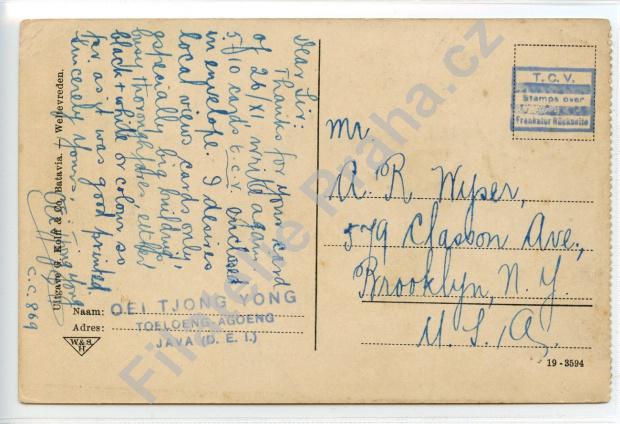 Dear Sir:
Thanks for your card
of 26/XI, write again
5/10 cards t.c.v. enclosed
in envelope. I desires
local views cards only,
especially big buildings,
busy thoroughfares either
black + white or colour so
far as it was good printed.
Sincerely yours,
C.C. 869
Uitgave G. Kolff & Co., Batavia. — Weltevreden.
Naam: OEI TJONG YONG
Adres: TOELOENG-AGOENG
JAVA (D. E. I.)
W&S
H
T. C. V.
Stamps over
Frankatur Rückseite
Mr
A. R. Wyser,
579 Classon Ave.,
Brooklyn, N. Y.
U. S. A.
19 - 3594
Filatelie Praha.cz